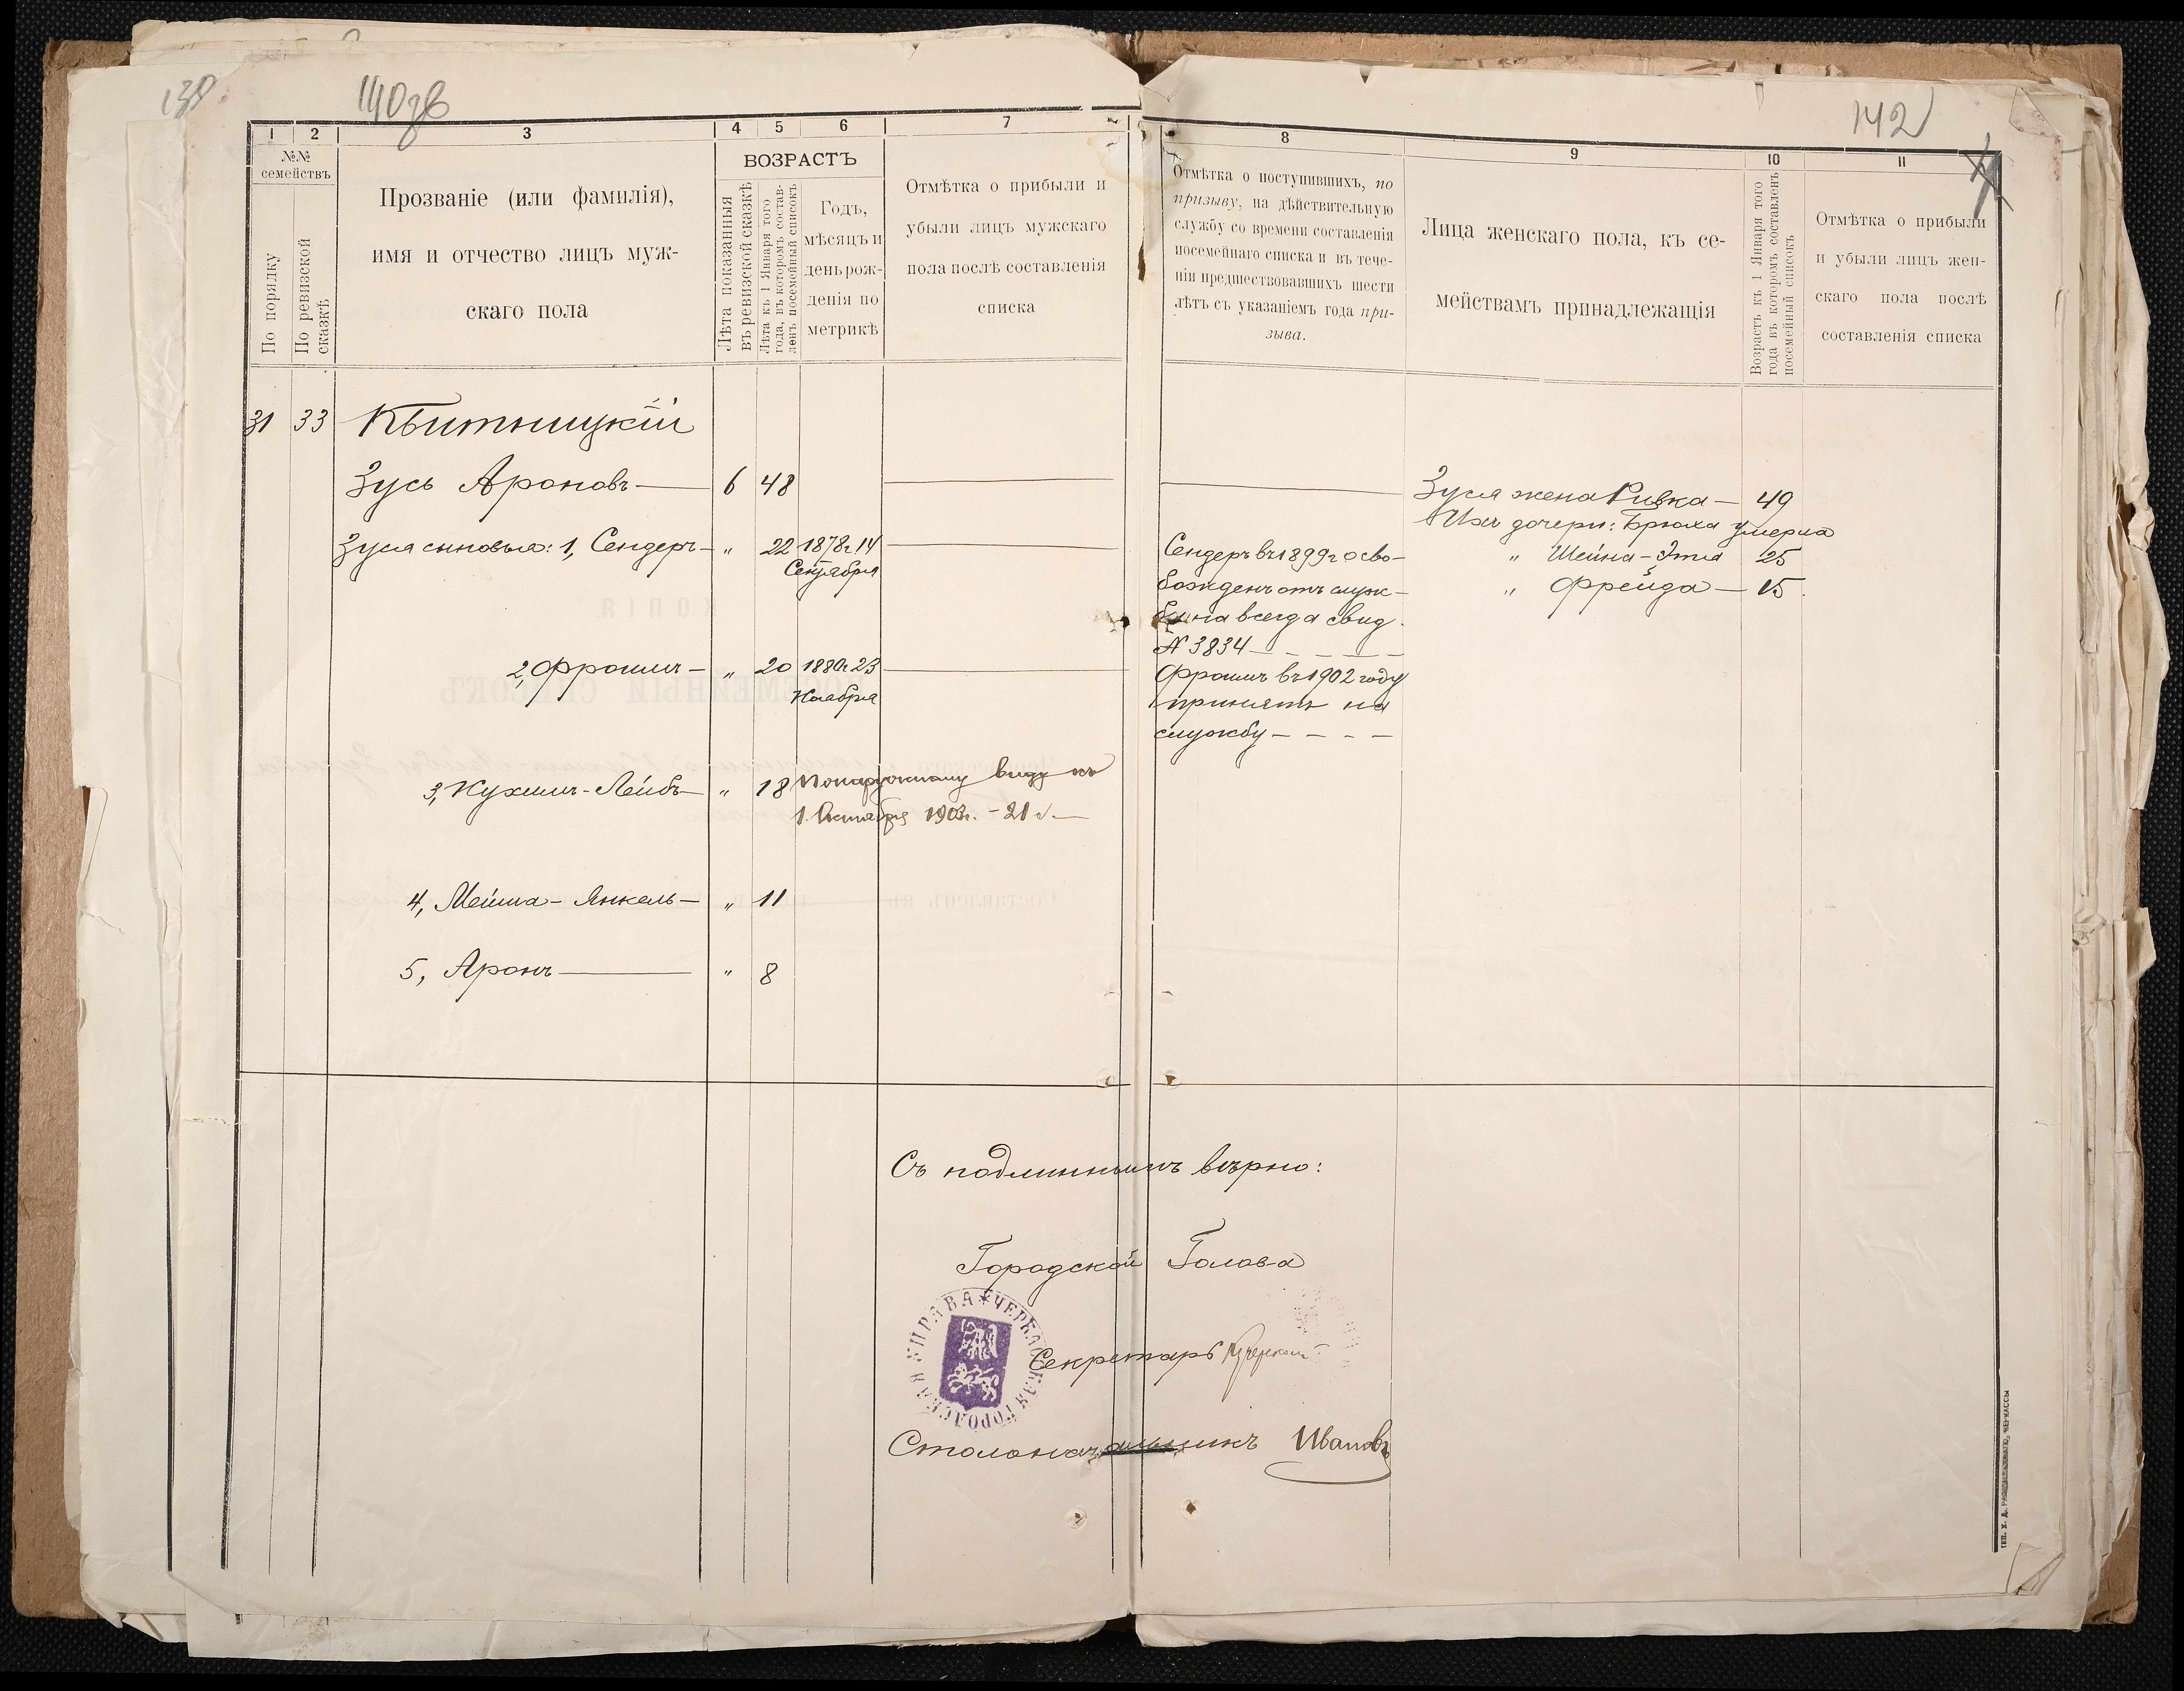 140 об
142
1 2 3 4 5 6 7
8 9 10 11
№№ семействъ
По порядку
По ревизской сказкѣ
Прозваніе (или фамилія),
имя и отчество лицъ муж-
скаго пола
ВОЗРАСТЪ
Лѣта показанныя
въ ревизской сказкѣ
Лѣта къ 1 Января того
года, въ которомъ состав-
ленъ посемейный списокъ
Годъ,
мѣсяцъ и
день рож-
денія по
метрикѣ
Отмѣтка о прибыли и
убыли лицъ мужскаго
пола послѣ составленія
списка
Отмѣтка о поступившихъ, по
призыву, на дѣйствительную
службу со времени составленія
посемейнаго списка и въ тече-
ніи предшествовавшихъ шести
лѣтъ съ указаніемъ года при-
зыва.
Лица женскаго пола, къ се-
мействамъ принадлежащія
Возрастъ къ 1 Января того
года въ которомъ составленъ
посемейный списокъ
Отмѣтка о прибыли
и убыли лицъ жен-
скаго пола послѣ
составленія списка
31 33 Квитницкій
Зусь Ароновъ — 6 48
Зуся жена Ривка — 49
Ихъ дочери: Брюха умерла
Зуся сыновья: 1, Сендеръ — " 22 1878г. 14
Сентября
Сендеръ въ 1899г осво-
божденъ отъ служ-
бы на всегда свид.
№ 3834 — — — —
" Шейна-Этта 25
" Фрейда — 15.
2, Фроимъ — " 20 1880г. 23
Ноября
Фроимъ въ 1902 году
принятъ на
службу — — — —
3, Нухимъ-Лейбъ — " 18 По наружному виду къ
1. Октября 1903г. — 21 г. —
4, Мейша-Янкель — " 11
5, Аронъ — " 8
Съ подлиннымъ вѣрно:
Городской Голова
ЧЕРКАССКАЯ ГОРОДСКАЯ УПРАВА
Секретарь
Столоначальникъ Ивановъ